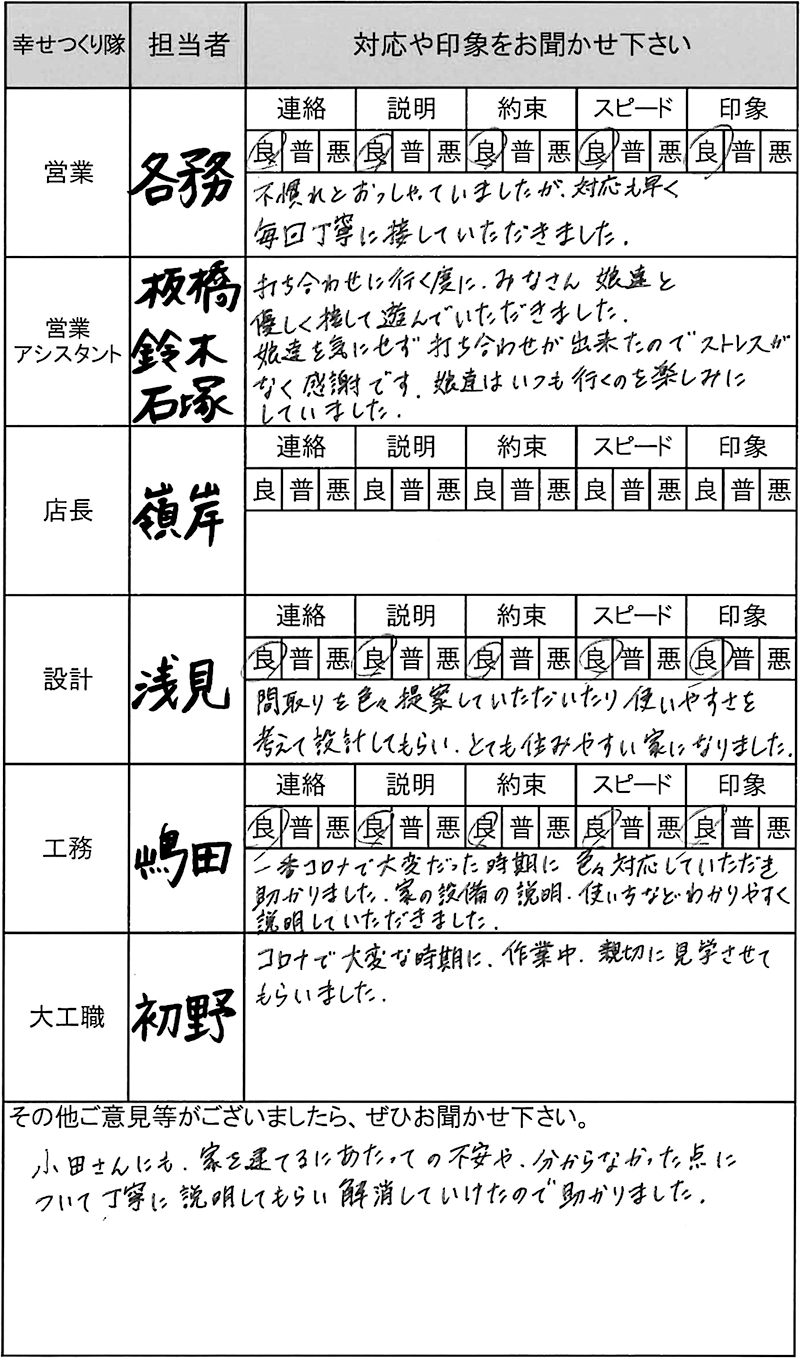 幸せつくり隊 担当者 対応や印象をお聞かせ下さい
営業 各務
連絡 説明 約束 スピード 印象
良 普 悪 良 普 悪 良 普 悪 良 普 悪 良 普 悪
不慣れとおっしゃていましたが、対応も早く
毎回丁寧に接していただきました.
営業
アシスタント
板橋
鈴木
石塚
打ち合わせに行く度に、みなさん 娘達と
優しく接して遊んでいただきました.
娘達を気にせず打ち合わせが出来たのでストレスが
なく感謝です. 娘達はいつも行くのを楽しみに
していました.
店長 嶺岸
連絡 説明 約束 スピード 印象
良 普 悪 良 普 悪 良 普 悪 良 普 悪 良 普 悪
設計 浅見
連絡 説明 約束 スピード 印象
良 普 悪 良 普 悪 良 普 悪 良 普 悪 良 普 悪
間取りを色々提案していただいたり 使いやすさを
考えて設計してもらい、とても住みやすい家になりました.
工務 嶋田
連絡 説明 約束 スピード 印象
良 普 悪 良 普 悪 良 普 悪 良 普 悪 良 普 悪
一番コロナで大変だった時期に 色々対応していただき
助かりました. 家の設備の説明、使い方などわかりやすく
説明していただきました.
大工職 初野
コロナで大変な時期に、作業中、親切に見学させて
もらいました.
その他ご意見等がございましたら、ぜひお聞かせ下さい。
小田さんにも、家を建てるにあたっての不安や、分からなかった点に
ついて丁寧に説明してもらい解消していけたので助かりました.